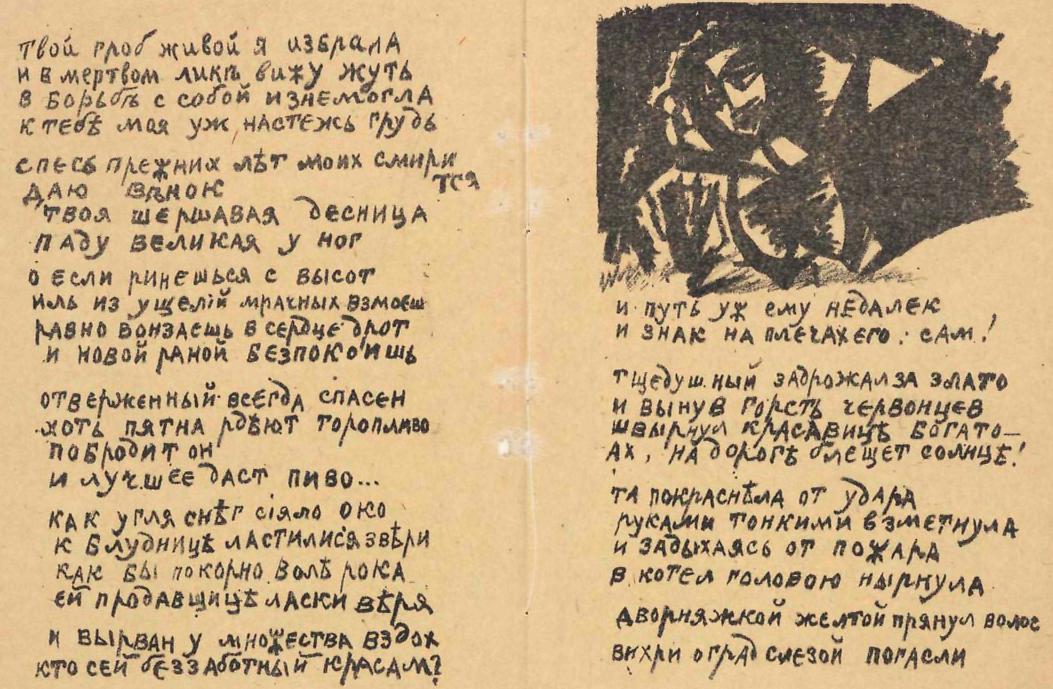 твой гроб живой я избрала
и в мертвом ликѣ вижу жуть
в борьбѣ с собой изнемогла
к тебѣ моя уж настежь грудь
спесь прежних лѣт моих смирится
даю вѣнок
твоя шершавая десница
паду великая у ног
о если ринешься с высот
иль из ущелій мрачных взмоеш
равно вонзаешь в сердце дрот
и новой раной безпокоишь
отверженный всегда спасен
хоть пятна рдѣют торопливо
побродит он
и лучшее даст пиво...
как угля снѣг сіяло око
к блудницѣ ластилися звѣри
как бы покорно волѣ рока
ей продавщицѣ ласки вѣря
и вырван у множества вздох
кто сей беззаботный красам?
и путь уж ему недалек
и знак на плечах его: сам!
тщедушный задрожал за злато
и вынув горсть червонцев
швырнул красавицѣ богато—
ах, на дорогѣ блещет солнцѣ!
та покраснѣла от удара
руками тонкими взметнула
и задыхаясь от пожара
в котел головою нырнула
дворняжкой желтой прянул волос
вихри оград слезой погасли